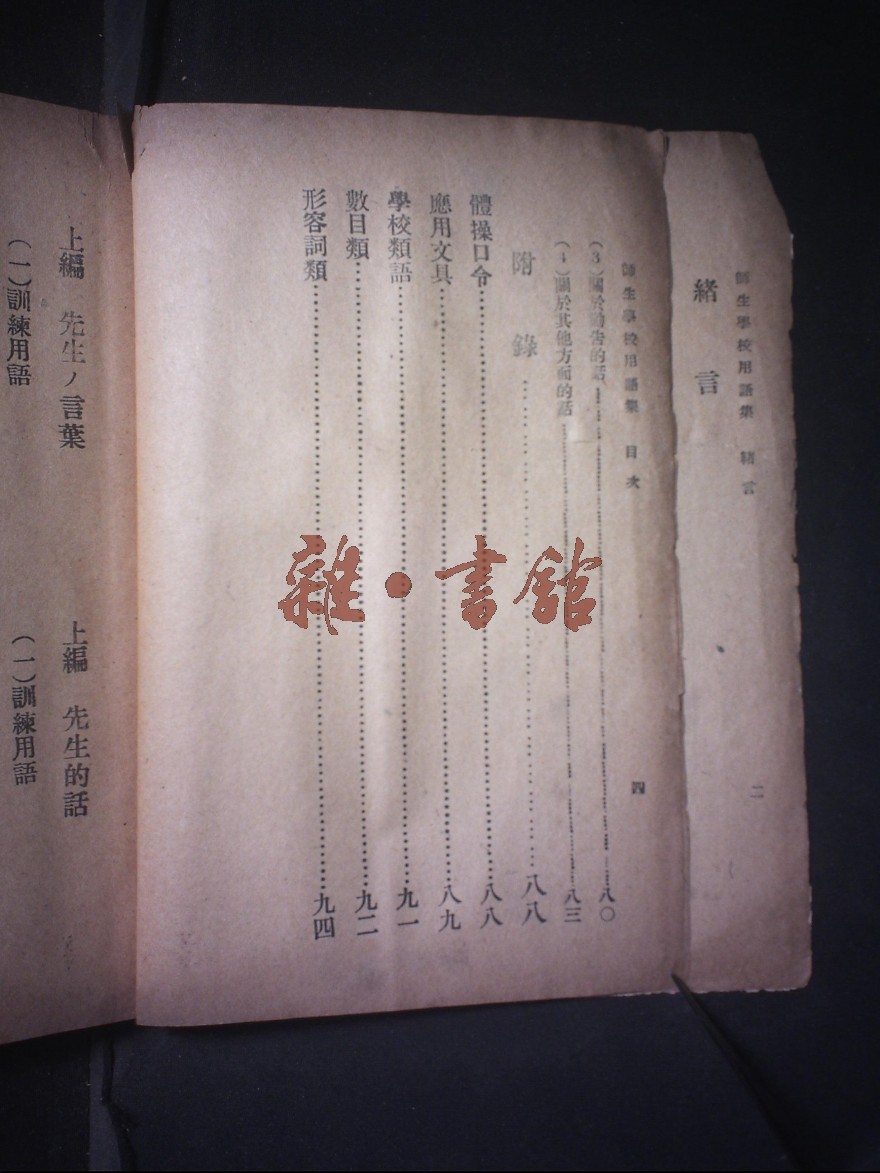 師生學校用語集 緒言
二
緒言
師生學校用語集 目次
四
(3)關於勸告的話……八〇
(4)關於其他方面的話……八三
附錄……八八
體操口令……八八
應用文具……八九
學校類語……九一
數目類……九二
形容詞類……九四
上編 先生ノ言葉
上編 先生的話
(一)訓練用語
(一)訓練用語
雜・書館